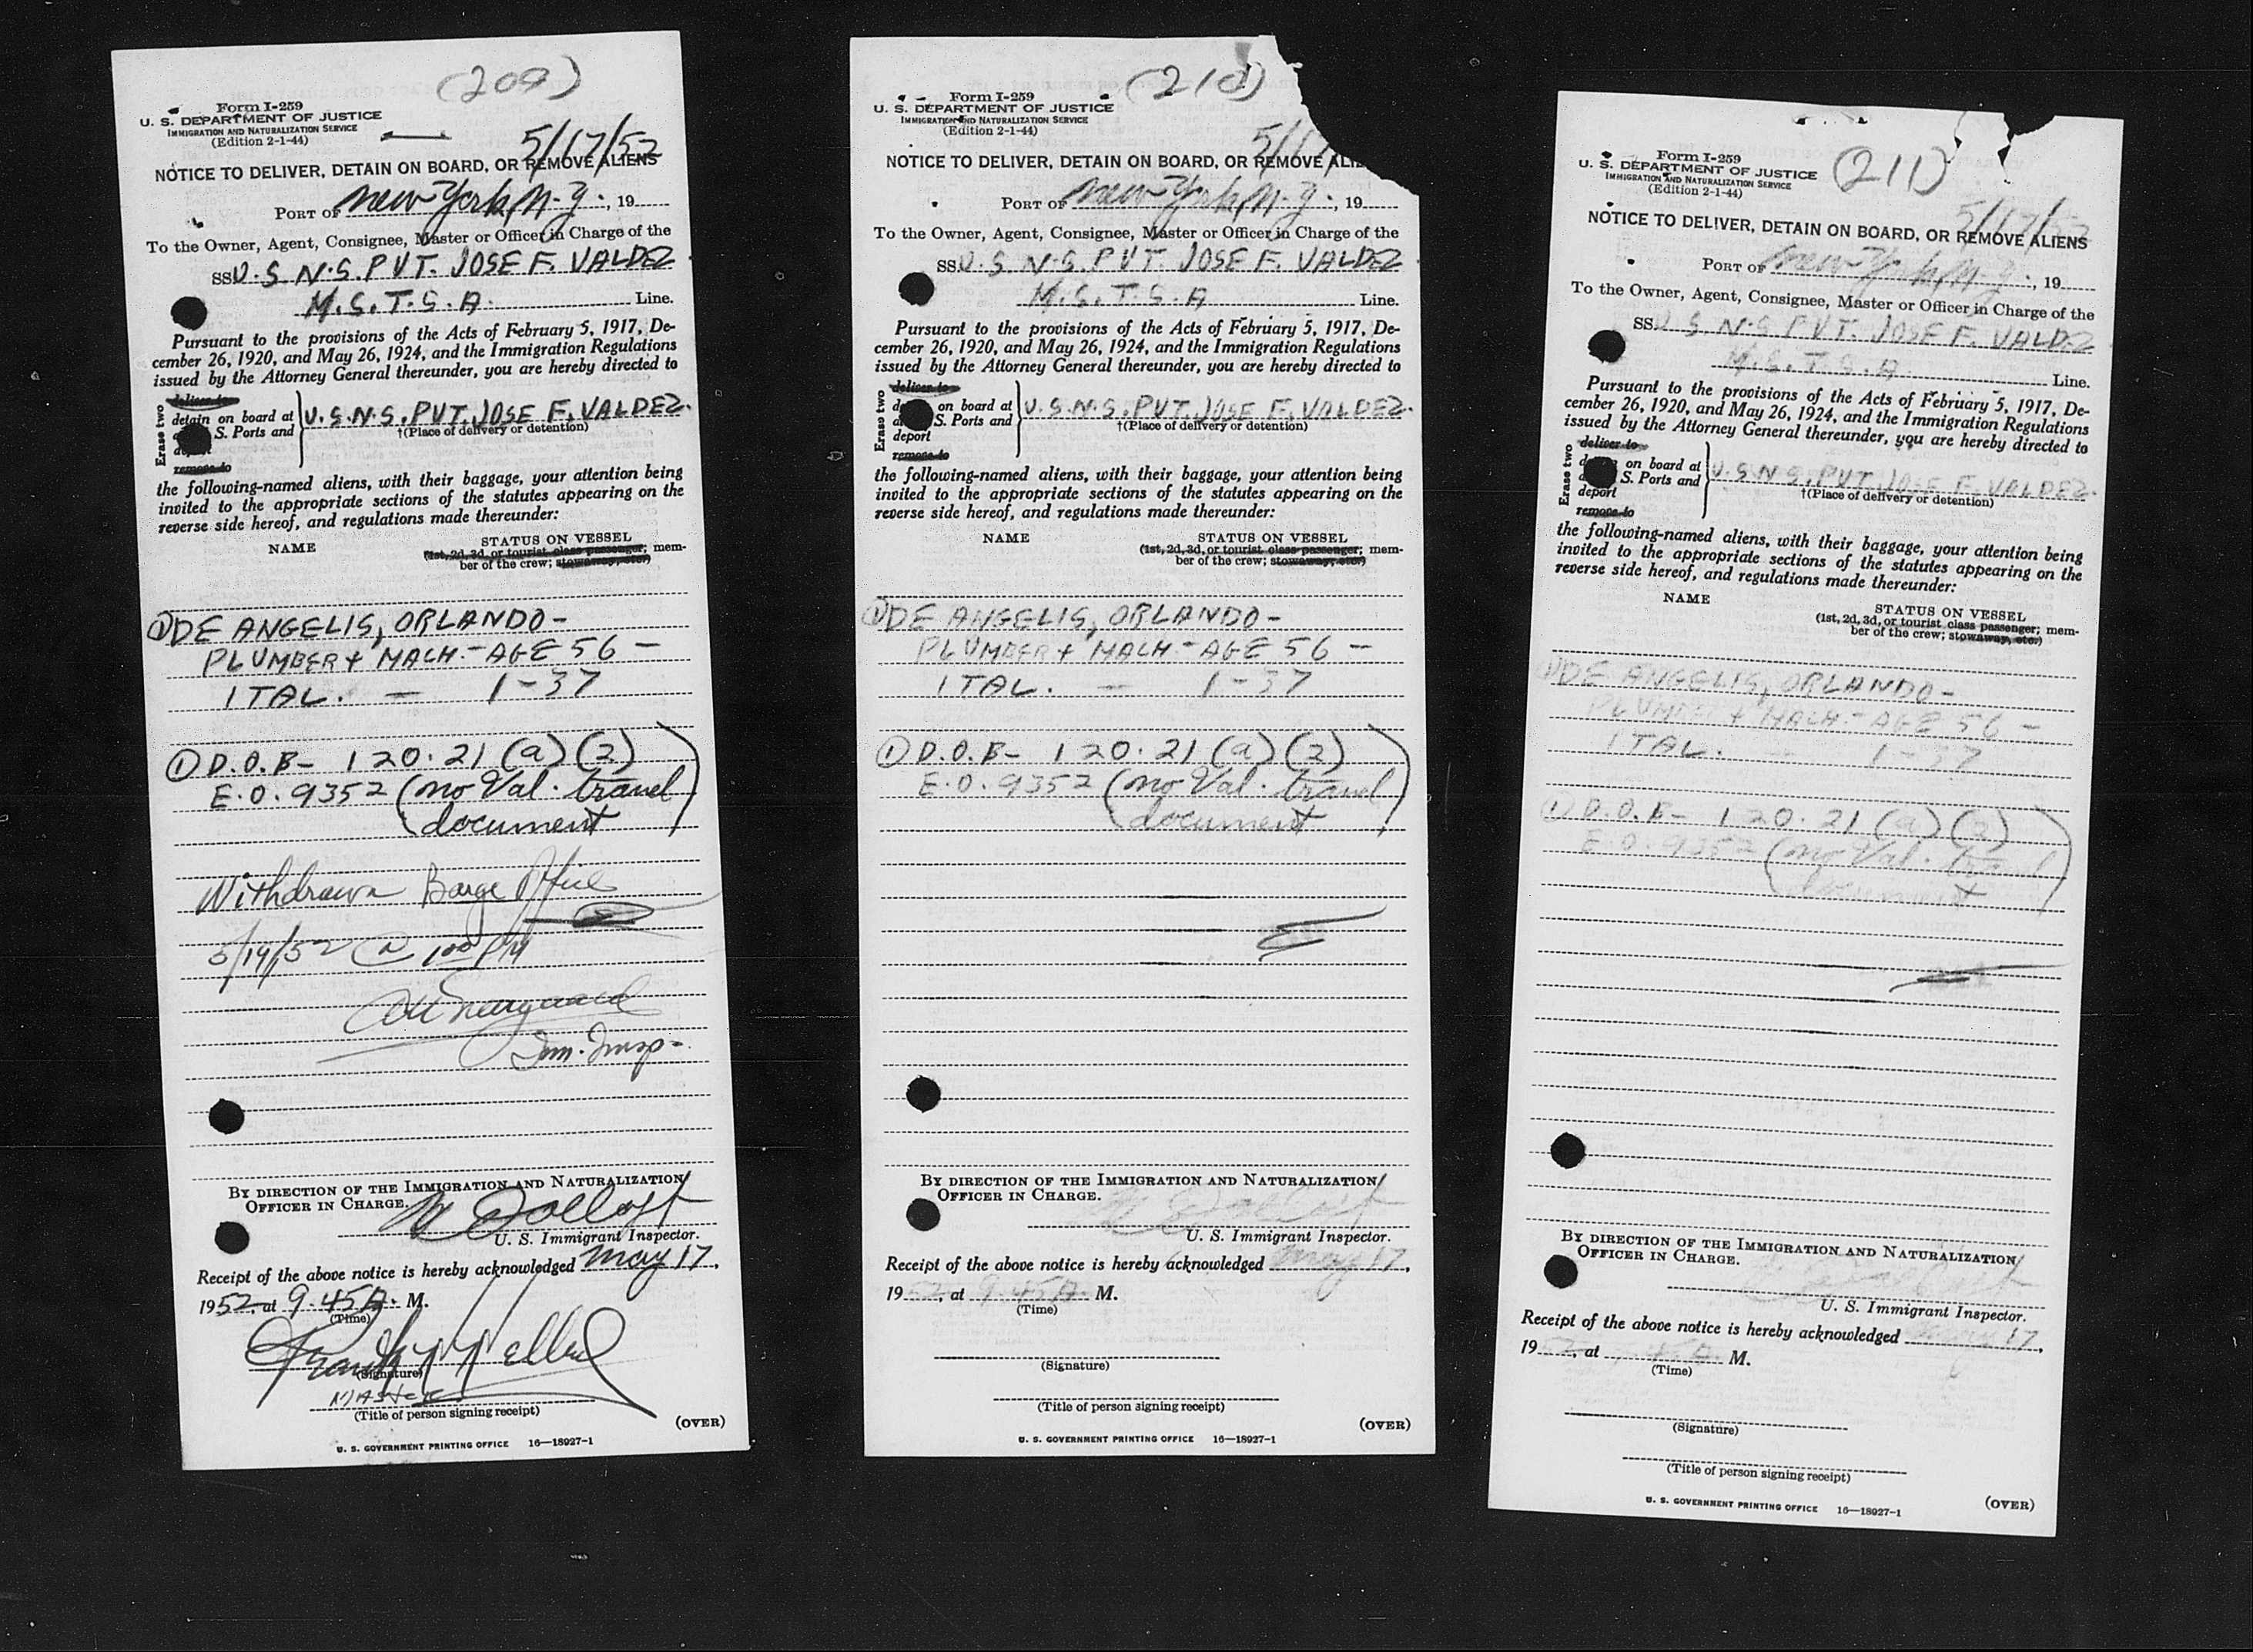 (209)
Form I-259
U. S. DEPARTMENT OF JUSTICE
IMMIGRATION AND NATURALIZATION SERVICE
(Edition 2-1-44)
5/17/52
NOTICE TO DELIVER, DETAIN ON BOARD, OR REMOVE ALIENS
PORT OF New York, N.Y., 19
To the Owner, Agent, Consignee, Master or Officer in Charge of the
SS U.S.N.S. PVT. JOSE F. VALDEZ
M.S.T.S.A. Line.
Pursuant to the provisions of the Acts of February 5, 1917, De-
cember 26, 1920, and May 26, 1924, and the Immigration Regulations
issued by the Attorney General thereunder, you are hereby directed to
Erase two
deliver to
detain on board at
S. Ports and
remove to
U.S.N.S. PVT. JOSE F. VALDEZ.
†(Place of delivery or detention)
the following-named aliens, with their baggage, your attention being
invited to the appropriate sections of the statutes appearing on the
reverse side hereof, and regulations made thereunder:
NAME STATUS ON VESSEL
(1st, 2d, 3d, or tourist class passenger; mem-
ber of the crew; stowaway, etc.)
① DE ANGELIS, ORLANDO -
PLUMBER + MACH. - AGE 56 -
ITAL. - 1-37
① D.O.B - 120.21 (a) (2)
E.O. 9352 (no Val. travel
document)
Withdrawn Barge Office
5/19/52 @ 1 00 PM
Imm. Insp -
BY DIRECTION OF THE IMMIGRATION AND NATURALIZATION
OFFICER IN CHARGE.
U. S. Immigrant Inspector.
Receipt of the above notice is hereby acknowledged May 17,
1952, at 9.45 A. M.
(Time)
(Signature)
MASTER
(Title of person signing receipt)
(OVER)
U. S. GOVERNMENT PRINTING OFFICE 16—18927-1
(210)
Form I-259
U. S. DEPARTMENT OF JUSTICE
IMMIGRATION AND NATURALIZATION SERVICE
(Edition 2-1-44)
5/17
NOTICE TO DELIVER, DETAIN ON BOARD, OR REMOVE ALIE
PORT OF New York, N.Y., 19
To the Owner, Agent, Consignee, Master or Officer in Charge of the
SS U.S.N.S. PVT. JOSE F. VALDEZ
M.S.T.S.A Line.
Pursuant to the provisions of the Acts of February 5, 1917, De-
cember 26, 1920, and May 26, 1924, and the Immigration Regulations
issued by the Attorney General thereunder, you are hereby directed to
Erase two
deliver to
on board at
S. Ports and
deport
remove to
U.S.N.S. PVT. JOSE F. VALDEZ.
†(Place of delivery or detention)
the following-named aliens, with their baggage, your attention being
invited to the appropriate sections of the statutes appearing on the
reverse side hereof, and regulations made thereunder:
NAME STATUS ON VESSEL
(1st, 2d, 3d, or tourist class passenger; mem-
ber of the crew; stowaway, etc.)
① DE ANGELIS, ORLANDO -
PLUMBER + MACH. - AGE 56 -
ITAL. - 1-37
① D.O.B - 120.21 (a) (2)
E.O. 9352 (no Val. travel
document)
BY DIRECTION OF THE IMMIGRATION AND NATURALIZATION
OFFICER IN CHARGE.
U. S. Immigrant Inspector.
Receipt of the above notice is hereby acknowledged May 17,
1952, at 9.45 A. M.
(Time)
(Signature)
(Title of person signing receipt)
(OVER)
U. S. GOVERNMENT PRINTING OFFICE 16—18927-1
(211)
Form I-259
U. S. DEPARTMENT OF JUSTICE
IMMIGRATION AND NATURALIZATION SERVICE
(Edition 2-1-44)
5/17/52
NOTICE TO DELIVER, DETAIN ON BOARD, OR REMOVE ALIENS
PORT OF New York, N.Y., 19
To the Owner, Agent, Consignee, Master or Officer in Charge of the
SS U.S.N.S PVT. JOSE F. VALDEZ
M.S.T.S.A Line.
Pursuant to the provisions of the Acts of February 5, 1917, De-
cember 26, 1920, and May 26, 1924, and the Immigration Regulations
issued by the Attorney General thereunder, you are hereby directed to
Erase two
deliver to
on board at
S. Ports and
deport
remove to
U.S.N.S. PVT. JOSE F. VALDEZ.
†(Place of delivery or detention)
the following-named aliens, with their baggage, your attention being
invited to the appropriate sections of the statutes appearing on the
reverse side hereof, and regulations made thereunder:
NAME STATUS ON VESSEL
(1st, 2d, 3d, or tourist class passenger; mem-
ber of the crew; stowaway, etc.)
① DE ANGELIS, ORLANDO -
PLUMBER + MACH. - AGE 56 -
ITAL. - 1-37
① D.O.B - 120.21 (a) (2)
E.O. 9352 (no Val. travel
document)
BY DIRECTION OF THE IMMIGRATION AND NATURALIZATION
OFFICER IN CHARGE.
U. S. Immigrant Inspector.
Receipt of the above notice is hereby acknowledged May 17,
1952, at A. M.
(Time)
(Signature)
(Title of person signing receipt)
(OVER)
U. S. GOVERNMENT PRINTING OFFICE 16—18927-1